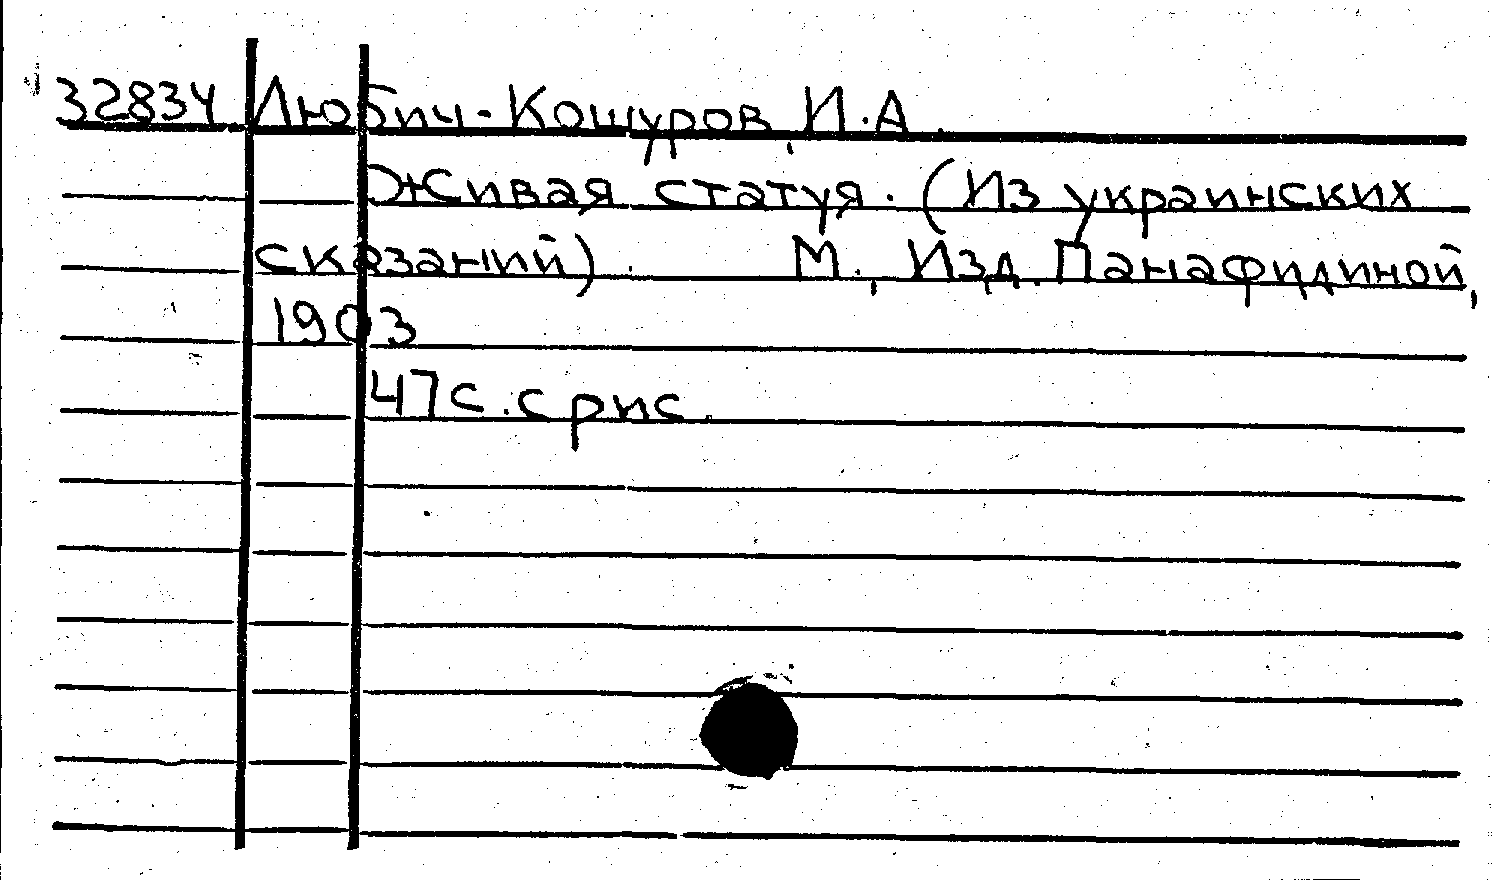 32834 Любич-Кошуров, И.А.
Живая статуя. (Из украинских
сказаний). М., Изд. Панафидиной,
1903
47 с. с рис.